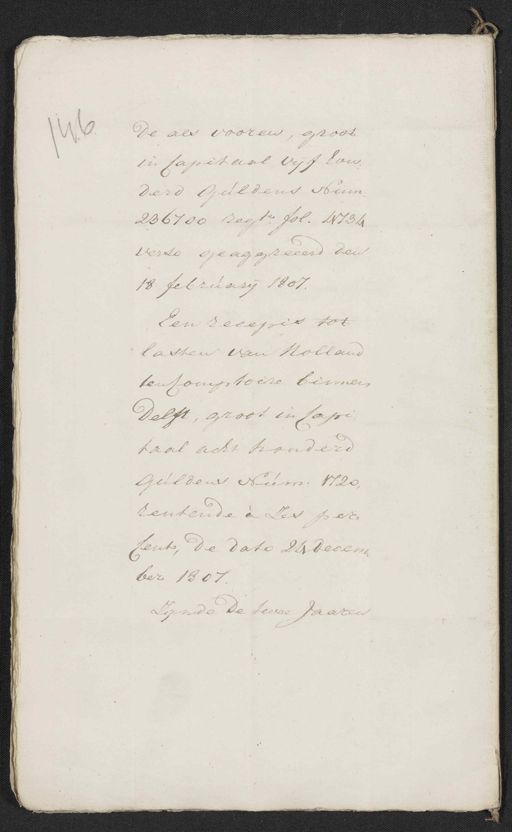 146
De als vooren, groot
in Capitaal vijf hon
derd Guldens Num
236700 regtr. fol. 4734
verso geaggreerd den
18 februarij 1807.
Een recepis tot
lasten van Holland
ten Comptoire binnen
Delft, groot in Capi
taal acht honderd
Guldens Núm. 1720,
rentende à Zes per
Cento, de dato 24 decem
ber 1807.
Zijnde de twee Jaaren